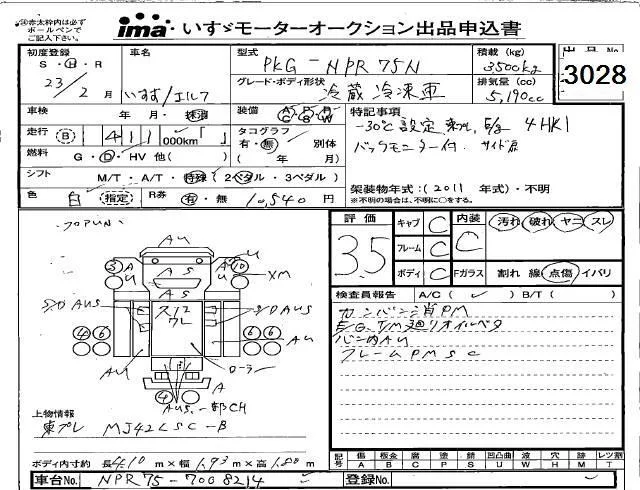 赤太枠内は必ずボールペンでご記入下さい。
ima いすゞモーターオークション出品申込書
初度登録 S・H・R 23/2月
車名 いすゞ/エルフ
型式 PKG-NPR75N
積載(kg) 3500kg
出品No. 3028
グレード・ボディ形状 冷蔵冷凍車
排気量(cc) 5,190cc
車検 年・月・抹消
装備
特記事項
走行 411 000km
タコグラフ 有・無 別体 (年 月)
-30℃設定 東プレ E/g 4HK1
バックモニター付
燃料 G・D・HV 他( )
シフト M/T・A/T・特殊(2ペダル・3ペダル)
色 白 (指定) R券 有・無 10,540円
架装物年式:(2011 年式)・不明
※不明の場合は、不明に○をする。
評価 3.5
キャブ C
フレーム C
ボディ C
内装 C 汚れ・破れ・ヤニ・スレ
Fガラス 割れ 線 点傷 イバリ
検査員報告 A/C( ✓ ) B/T( )
カンバン消PM
E/G、T/M廻りオイルベタ
バン内AU
フレームPMSC
AU
U
3 A
A 10
U
AS
U
XM
AS
S/D AUS
S/D AUS
4 6
6 6
AU
AU
ローラー
A
4
AUS.一部CH
上物情報
東プレ MJ42LSC-B
ボディ内寸約 長4.10m×幅1.93m×高1.80m
記号 傷 板金 腐 塗 錆 凹凸曲 波 穴 跡 レツ割
A B C P S U W H M T
車台No. NPR75-7008214 登録No.